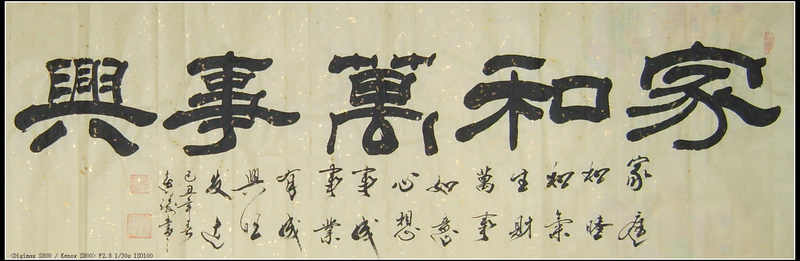 家和萬事興
家庭
和睦
和氣
生財
萬事
如意
心想
事成
事業
有成
興旺
发达
己丑年春
書
<Digimax S800 / Kenox S800> F2.8 1/30s ISO100